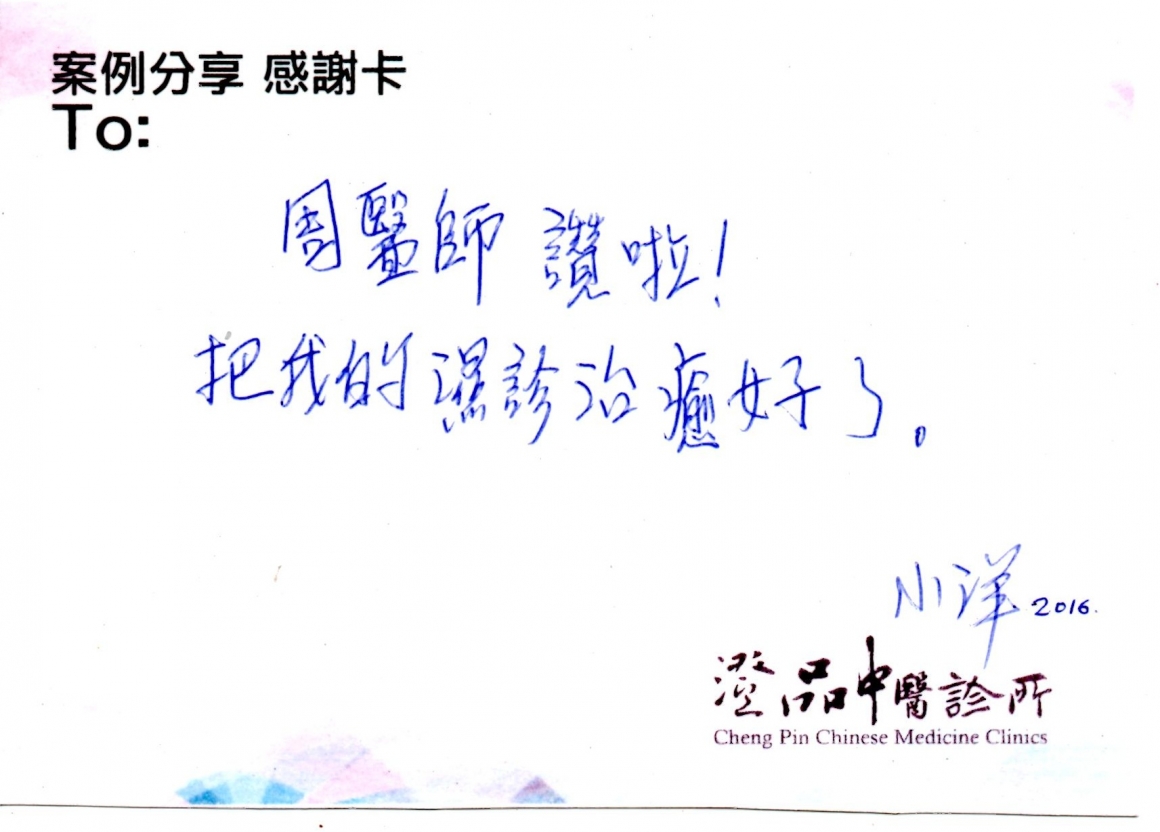 案例分享 感謝卡
To:
周醫師 讚啦!
把我的濕診治癒好了。
小洋 2016.
澄品中醫診所
Cheng Pin Chinese Medicine Clinics